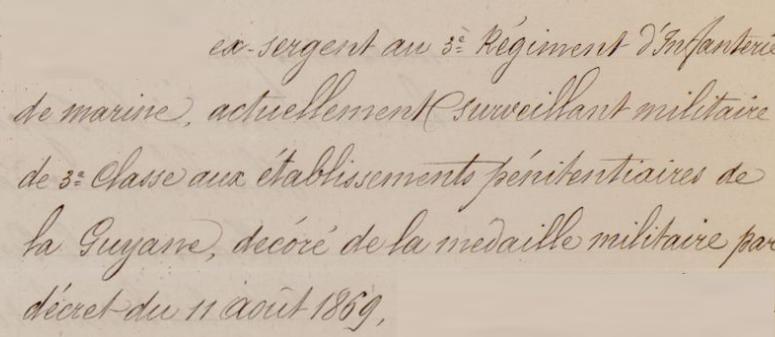 ex-sergent au 3e Régiment d'Infanterie
de marine, actuellement surveillant militaire
de 3e Classe aux établissements pénitentiaires de
la Guyane, décoré de la médaille militaire par
décret du 11 août 1869,